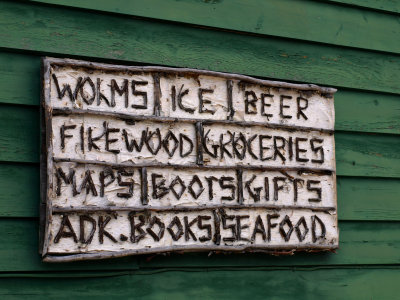 WORMS ICE BEER
FIREWOOD GROCERIES
MAPS BOOTS GIFTS
ADK. BOOKS SEAFOOD